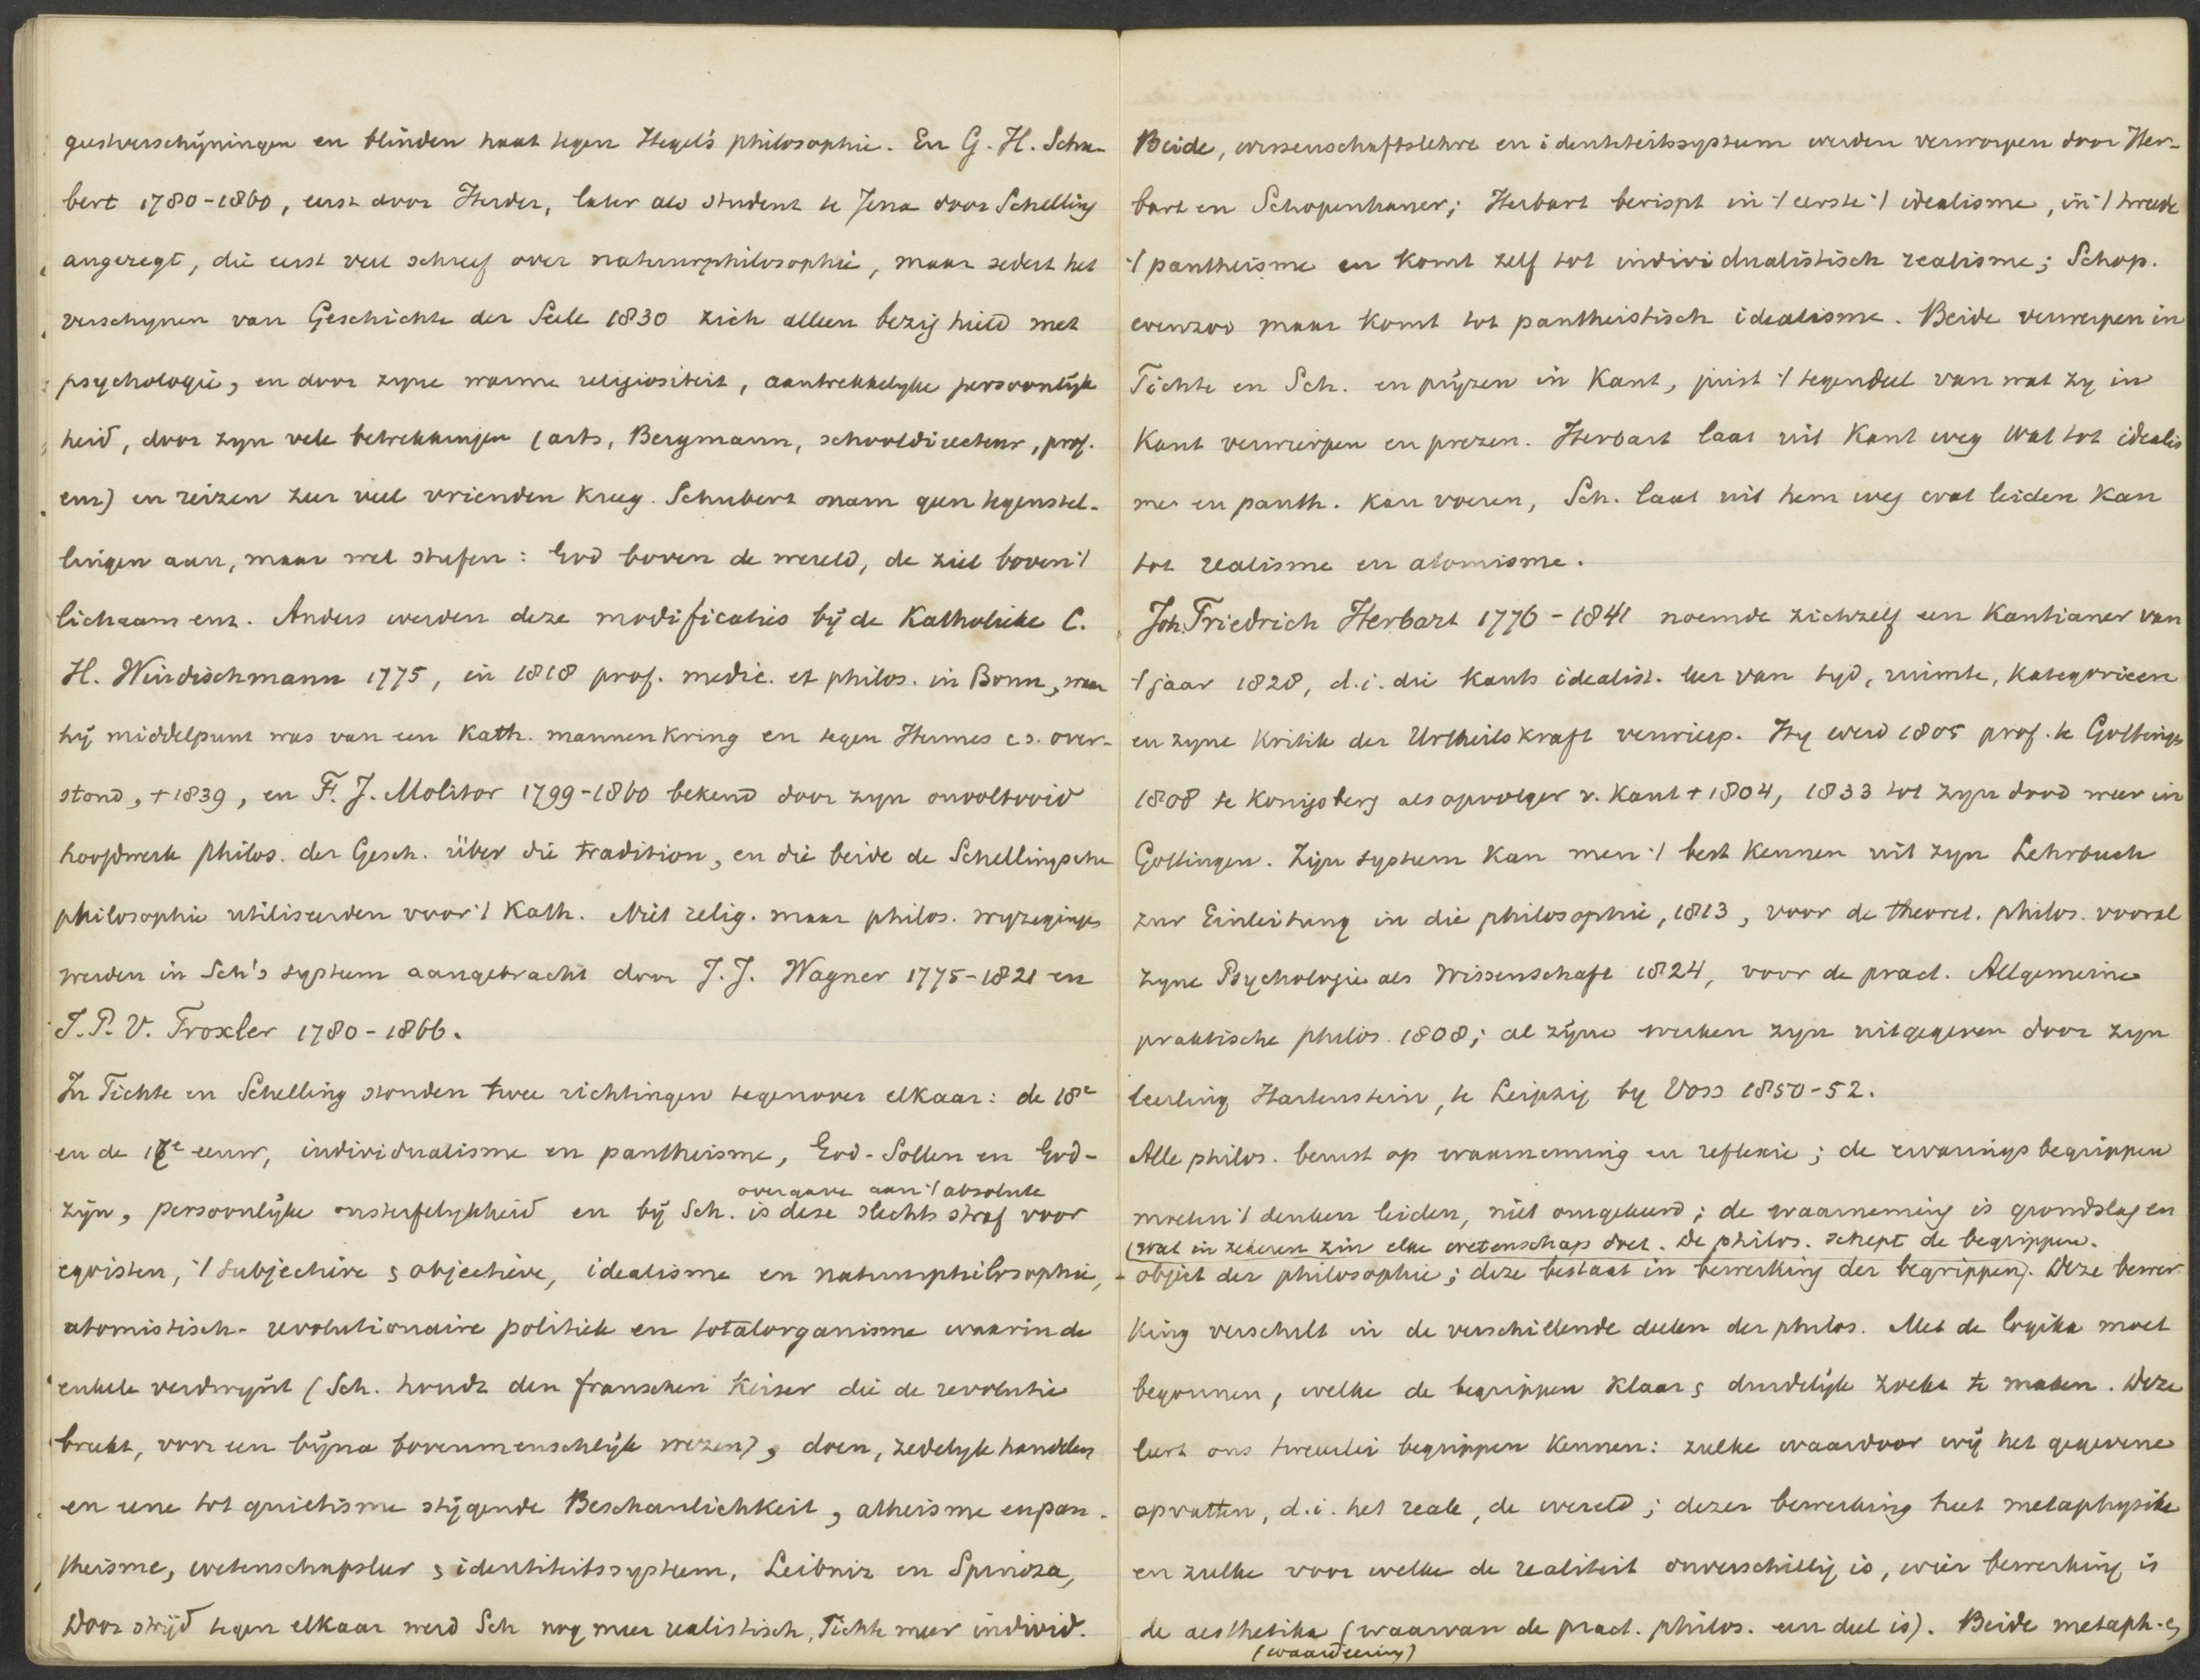 geestverschijningen en blinden haat tegen Hegel's philosophie. En G. H. Schu-
bert 1780-1860, eerst door Herder, later als student te Jena door Schelling
angeregt, die eerst veel schreef over natuurphilosophie, maar sedert het
verschynen van Geschichte der Seele 1830 zich alleen bezig hield met
psychologie, en door zyne warme religiositeit, aantrekkelyke persoonlijk
heid, door zyn vele betrekkingen (arts, Bergmann, schooldirecteur, prof.
enz) en reizen zeer veel vrienden kreeg. Schubert nam geen tegenstel-
lingen aan, maar wel stufen: God boven de wereld, de ziel boven 't
lichaam enz. Anders werden deze modificaties bij de Katholieke C.
H. Windischmann 1775, in 1818 prof. medic. et philos. in Bonn, waar
hij middelpunt was van een Kath. mannenkring en tegen Hermes c.s. over-
stond, +1839, en F. J. Molitor 1799-1860 bekend door zyn onvoltooid
hoofdwerk philos. der Gesch. über die tradition, en die beide de Schellingsche
philosophie utiliseerden voor 't Kath. Niet relig. maar philos. wyzegings
werden in Sch's systeem aangebracht door J. J. Wagner 1775-1821 en
I. P. V. Troxler 1780-1866.
In Fichte en Schelling stonden twee richtingen tegenover elkaar: de 18e
en de 17e eeuw, individualisme en pantheisme, God-Sollen en God-
overgave aan 't absolute
zijn, persoonlijke onsterfelykheid en bij Sch. is deze slechts straf voor
egoisten, 't subjectieve & objectieve, idealisme en natuurphilosophie,
atomistisch-revolutionaire politiek en totalorganisme waarin de
enkele verdwijnt (Sch. houdt den franschen Keizer die de revolutie
breekt, voor een bijna bovenmenschlijk wezen), doen, zedelyk handelen
en eene tot quietisme stijgende Beschaulichkeit, atheisme en pan-
theisme, wetenschapsleer & identiteitssysteem, Leibniz en Spinoza,
Door strijd tegen elkaar werd Sch nog meer realistisch, Fichte meer individ.
Beide, wissenschaftslehre en identiteitssysteem werden verworpen door Her-
bart en Schopenhauer; Herbart berispt in 't eerste 't idealisme, in 't tweede
't pantheisme en komt zelf tot individualistisch realisme; Schop.
evenzoo maar komt tot pantheistisch idealisme. Beide verwerpen in
Fichte en Sch. en prijzen in Kant, juist 't tegendeel van wat zy in
Kant verwierpen en prezen. Herbart laat uit Kant weg wat tot idealis
me en panth. kan voeren, Sch. laat uit hem weg wat leiden kan
tot realisme en atomisme.
Joh. Friedrich Herbart 1776-1841 noemde zichzelf een Kantianer van
't jaar 1828, d.i. die Kants idealist. leer van tyd, ruimte, kategorieen
en zyne Kritik der Urtheilskraft verwierp. Hy werd 1805 prof. te Gottingen
1808 te Konigsberg als opvolger v. Kant + 1804, 1833 tot zyn dood weer in
Gottingen. Zijn systeem kan men 't best kennen uit zyn Lehrbuch
zur Einleitung in die philosophie, 1813, voor de theoret. philos. vooral
zyne Psychologie als Wissenschaft 1824, voor de pract. Allgemeine
praktische philos. 1808; al zijne werken zyn uitgegeven door zyn
leerling Hartenstein, te Leipzig by Voss 1850-52.
Alle philos. berust op waarneming en reflexie; de ervarings begrippen
moeten 't denken leiden, niet omgekeerd; de waarneming is grondslag en
(wat in zekeren zin elke wetenschap doet. De philos. schept de begrippen.
objèct der philosophie; deze bestaat in bewerking der begrippen). Deze bewer
king verschilt in de verschillende deelen der philos. Met de logika moet
begonnen, welke de begrippen klaar & duidelijk zoekt te maken. Deze
leert ons tweeerlei begrippen kennen: zulke waardoor wij het gegevene
opvatten, d.i. het reale, de wereld; dezer bewerking heet metaphysika
en zulke voor welke de realiteit onverschillig is, wier bewerking is
de aesthetika (waarvan de pract. philos. een deel is). Beide metaph. &
(waardeering)